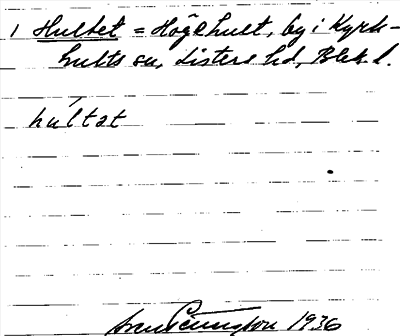 1 Hultet = Högahult, by i Kyrk-
hults sn, Listers hd, Blek. l.
húltat
1936